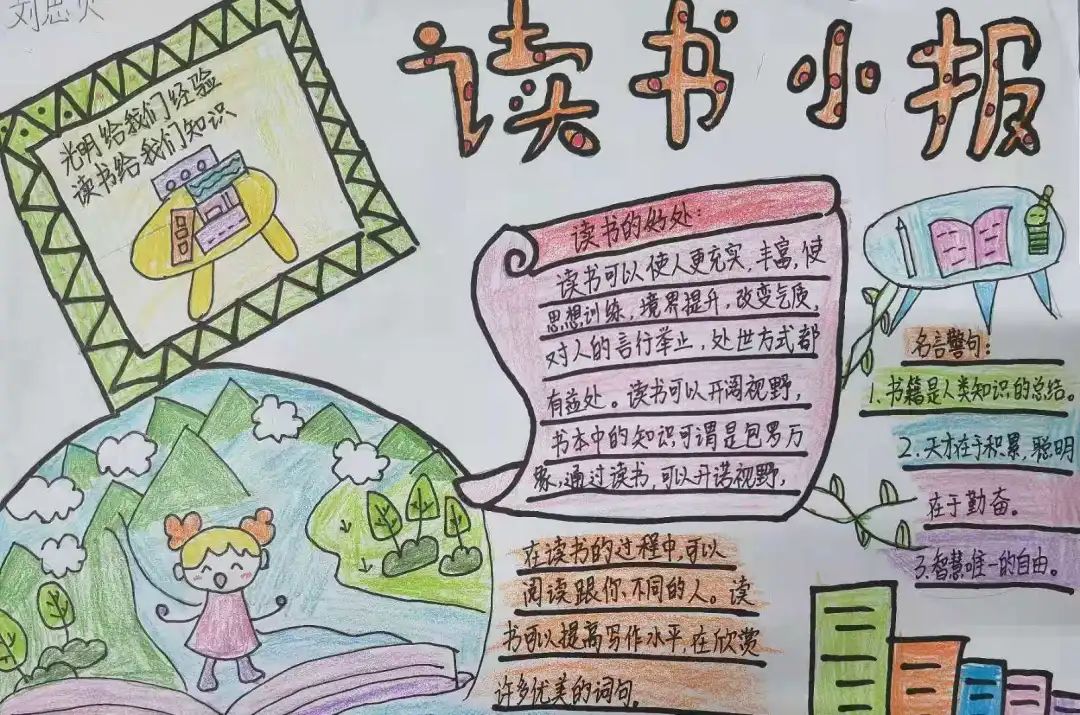 读书小报
光明给我们经验
读书给我们知识
读书的好处:
读书可以使人更充实,丰富,使
思想训练,境界提升,改变气质,
对人的言行举止,处世方式都
有益处。读书可以开阔视野,
书本中的知识可谓是包罗万
象,通过读书,可以开诺视野,
在读书的过程中,可以
阅读跟你不同的人。读
书可以提高写作水平,在欣赏
许多优美的词句。
名言警句:
1.书籍是人类知识的总结。
2.天才在于积累,聪明
在于勤奋。
3.智慧唯一的自由。